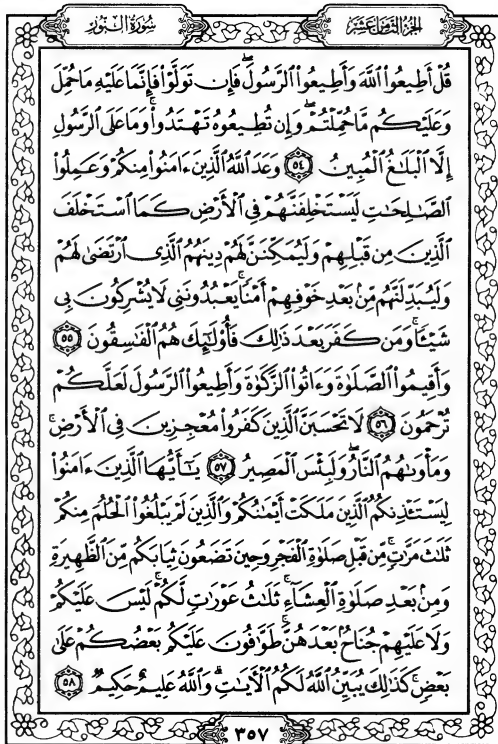 الجزء الثامن عشر سورة النور
قُلْ أَطِيعُوا۟ ٱللَّهَ وَأَطِيعُوا۟ ٱلرَّسُولَۖ فَإِن تَوَلَّوْا۟ فَإِنَّمَا عَلَيْهِ مَا حُمِّلَ
وَعَلَيْكُم مَّا حُمِّلْتُمْۖ وَإِن تُطِيعُوهُ تَهْتَدُوا۟ۚ وَمَا عَلَى ٱلرَّسُولِ
إِلَّا ٱلْبَلَٰغُ ٱلْمُبِينُ ٥٤ وَعَدَ ٱللَّهُ ٱلَّذِينَ ءَامَنُوا۟ مِنكُمْ وَعَمِلُوا۟
ٱلصَّٰلِحَٰتِ لَيَسْتَخْلِفَنَّهُمْ فِى ٱلْأَرْضِ كَمَا ٱسْتَخْلَفَ
ٱلَّذِينَ مِن قَبْلِهِمْ وَلَيُمَكِّنَنَّ لَهُمْ دِينَهُمُ ٱلَّذِى ٱرْتَضَىٰ لَهُمْ
وَلَيُبَدِّلَنَّهُم مِّنۢ بَعْدِ خَوْفِهِمْ أَمْنًاۚ يَعْبُدُونَنِى لَا يُشْرِكُونَ بِى
شَيْـًٔاۚ وَمَن كَفَرَ بَعْدَ ذَٰلِكَ فَأُو۟لَٰٓئِكَ هُمُ ٱلْفَٰسِقُونَ ٥٥
وَأَقِيمُوا۟ ٱلصَّلَوٰةَ وَءَاتُوا۟ ٱلزَّكَوٰةَ وَأَطِيعُوا۟ ٱلرَّسُولَ لَعَلَّكُمْ
تُرْحَمُونَ ٥٦ لَا تَحْسَبَنَّ ٱلَّذِينَ كَفَرُوا۟ مُعْجِزِينَ فِى ٱلْأَرْضِۚ
وَمَأْوَىٰهُمُ ٱلنَّارُۖ وَلَبِئْسَ ٱلْمَصِيرُ ٥٧ يَٰٓأَيُّهَا ٱلَّذِينَ ءَامَنُوا۟
لِيَسْتَـْٔذِنكُمُ ٱلَّذِينَ مَلَكَتْ أَيْمَٰنُكُمْ وَٱلَّذِينَ لَمْ يَبْلُغُوا۟ ٱلْحُلُمَ مِنكُمْ
ثَلَٰثَ مَرَّٰتٍۚ مِّن قَبْلِ صَلَوٰةِ ٱلْفَجْرِ وَحِينَ تَضَعُونَ ثِيَابَكُم مِّنَ ٱلظَّهِيرَةِ
وَمِنۢ بَعْدِ صَلَوٰةِ ٱلْعِشَآءِۚ ثَلَٰثُ عَوْرَٰتٍ لَّكُمْۚ لَيْسَ عَلَيْكُمْ
وَلَا عَلَيْهِمْ جُنَاحٌۢ بَعْدَهُنَّۚ طَوَّٰفُونَ عَلَيْكُم بَعْضُكُمْ عَلَىٰ
بَعْضٍۚ كَذَٰلِكَ يُبَيِّنُ ٱللَّهُ لَكُمُ ٱلْـَٔايَٰتِۗ وَٱللَّهُ عَلِيمٌ حَكِيمٌ ٥٨
٣٥٧